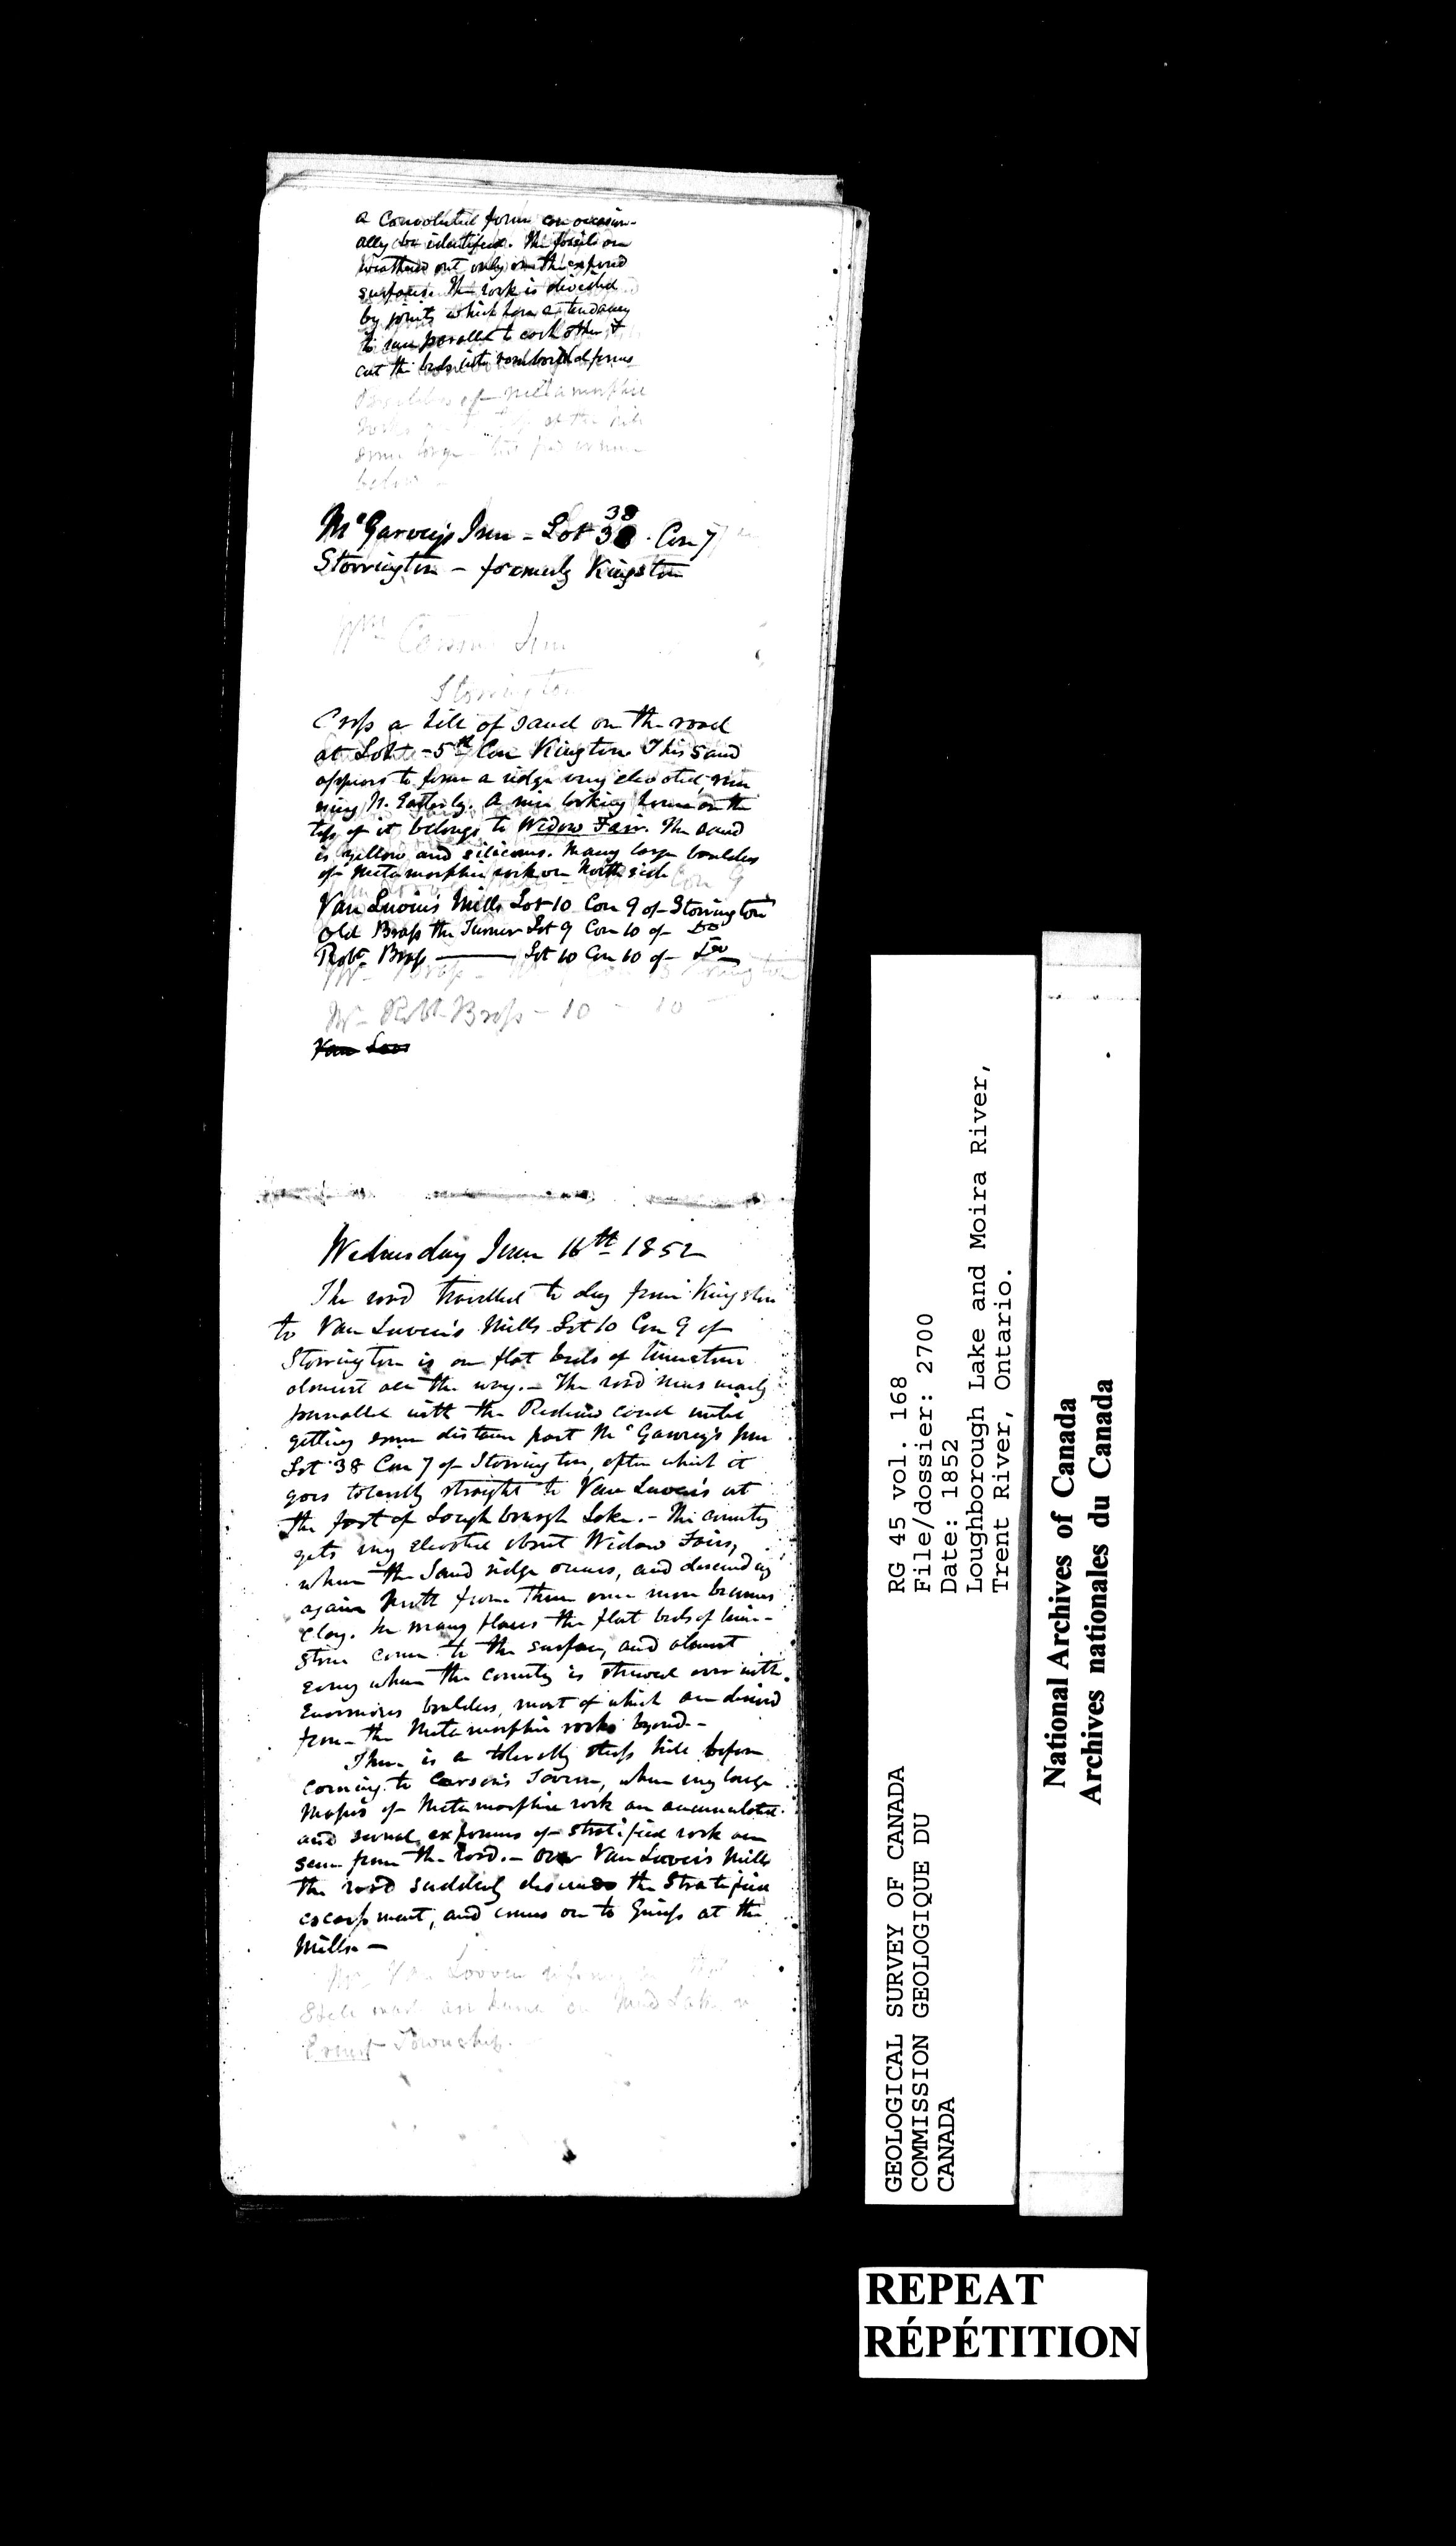 a convoluted form can occasion-
ally be identified. The fossils are
weathered out only on the exposed
surfaces. The rock is divided
by joints which have a tendancy
to run parallel to each other &
cut the beds into romboidal forms
Boulders of metamorphic
rocks at the hill
some large
below
McGarvey's Inn - Lot 38 38 . Con 7
Storrington - formerly Kingston
Wm Carsons Inn
Storrington
Cross a hill of sand on the road
at Lot - 5th Con Kingston. This sand
appears to form a ridge very elevated, run
ning N. Easterly. A nice looking house on the
top of it belongs to Widow Fair. The sand
is yellow and silicious. Many large boulders
of metamorphic rock on North side
Con 9
Van Luven's Mills Lot 10 Con 9 of Storrington
Old Brass the Turner Lot 9 Con 10 of Do
Robt Brass ——— Lot 10 Con 10 of Do
Mr Brass - Storrington
Mr Robt Brass - 10 - 10
Van Luv
Wednesday June 16th 1852
The road travelled to day from Kingston
to Van Luven's Mills Lot 10 Con 9 of
Storrington is on flat beds of limestone
almost all the way. - The road runs nearly
parrallel with the Rideau canal until
getting some distance past McGarvey's Inn
Lot 38 Con 7 of Storrington, after which it
goes tolerably straight to Van Luven's at
the foot of Loughborough Lake. - The country
gets very elevated about Widow Fairs,
where the Sand ridge occurs, and descending
again North from there once more becomes
Clay. In many places the flat beds of lime-
stone come to the surface, and almost
every where the country is strewed over with
enormous boulders, most of which are derived
from the Metamorphic rocks beyond. -
There is a tolerably steep hill before
coming to Carson's Tavern, where very large
masses of Metamorphic rock are accumulated
and several exposures of stratified rock are
seen from the road. - Over Van Luven's Mills
the road suddenly descends the Stratified
escarpment, and comes on to Gneiss at the
Mills -
Mr Van Looven informs me that
Still on Mud Lake in
Township.
GEOLOGICAL SURVEY OF CANADA
COMMISSION GEOLOGIQUE DU
CANADA
RG 45 vol. 168
File/dossier: 2700
Date: 1852
Loughborough Lake and Moira River,
Trent River, Ontario.
National Archives of Canada
Archives nationales du Canada
REPEAT
RÉPÉTITION